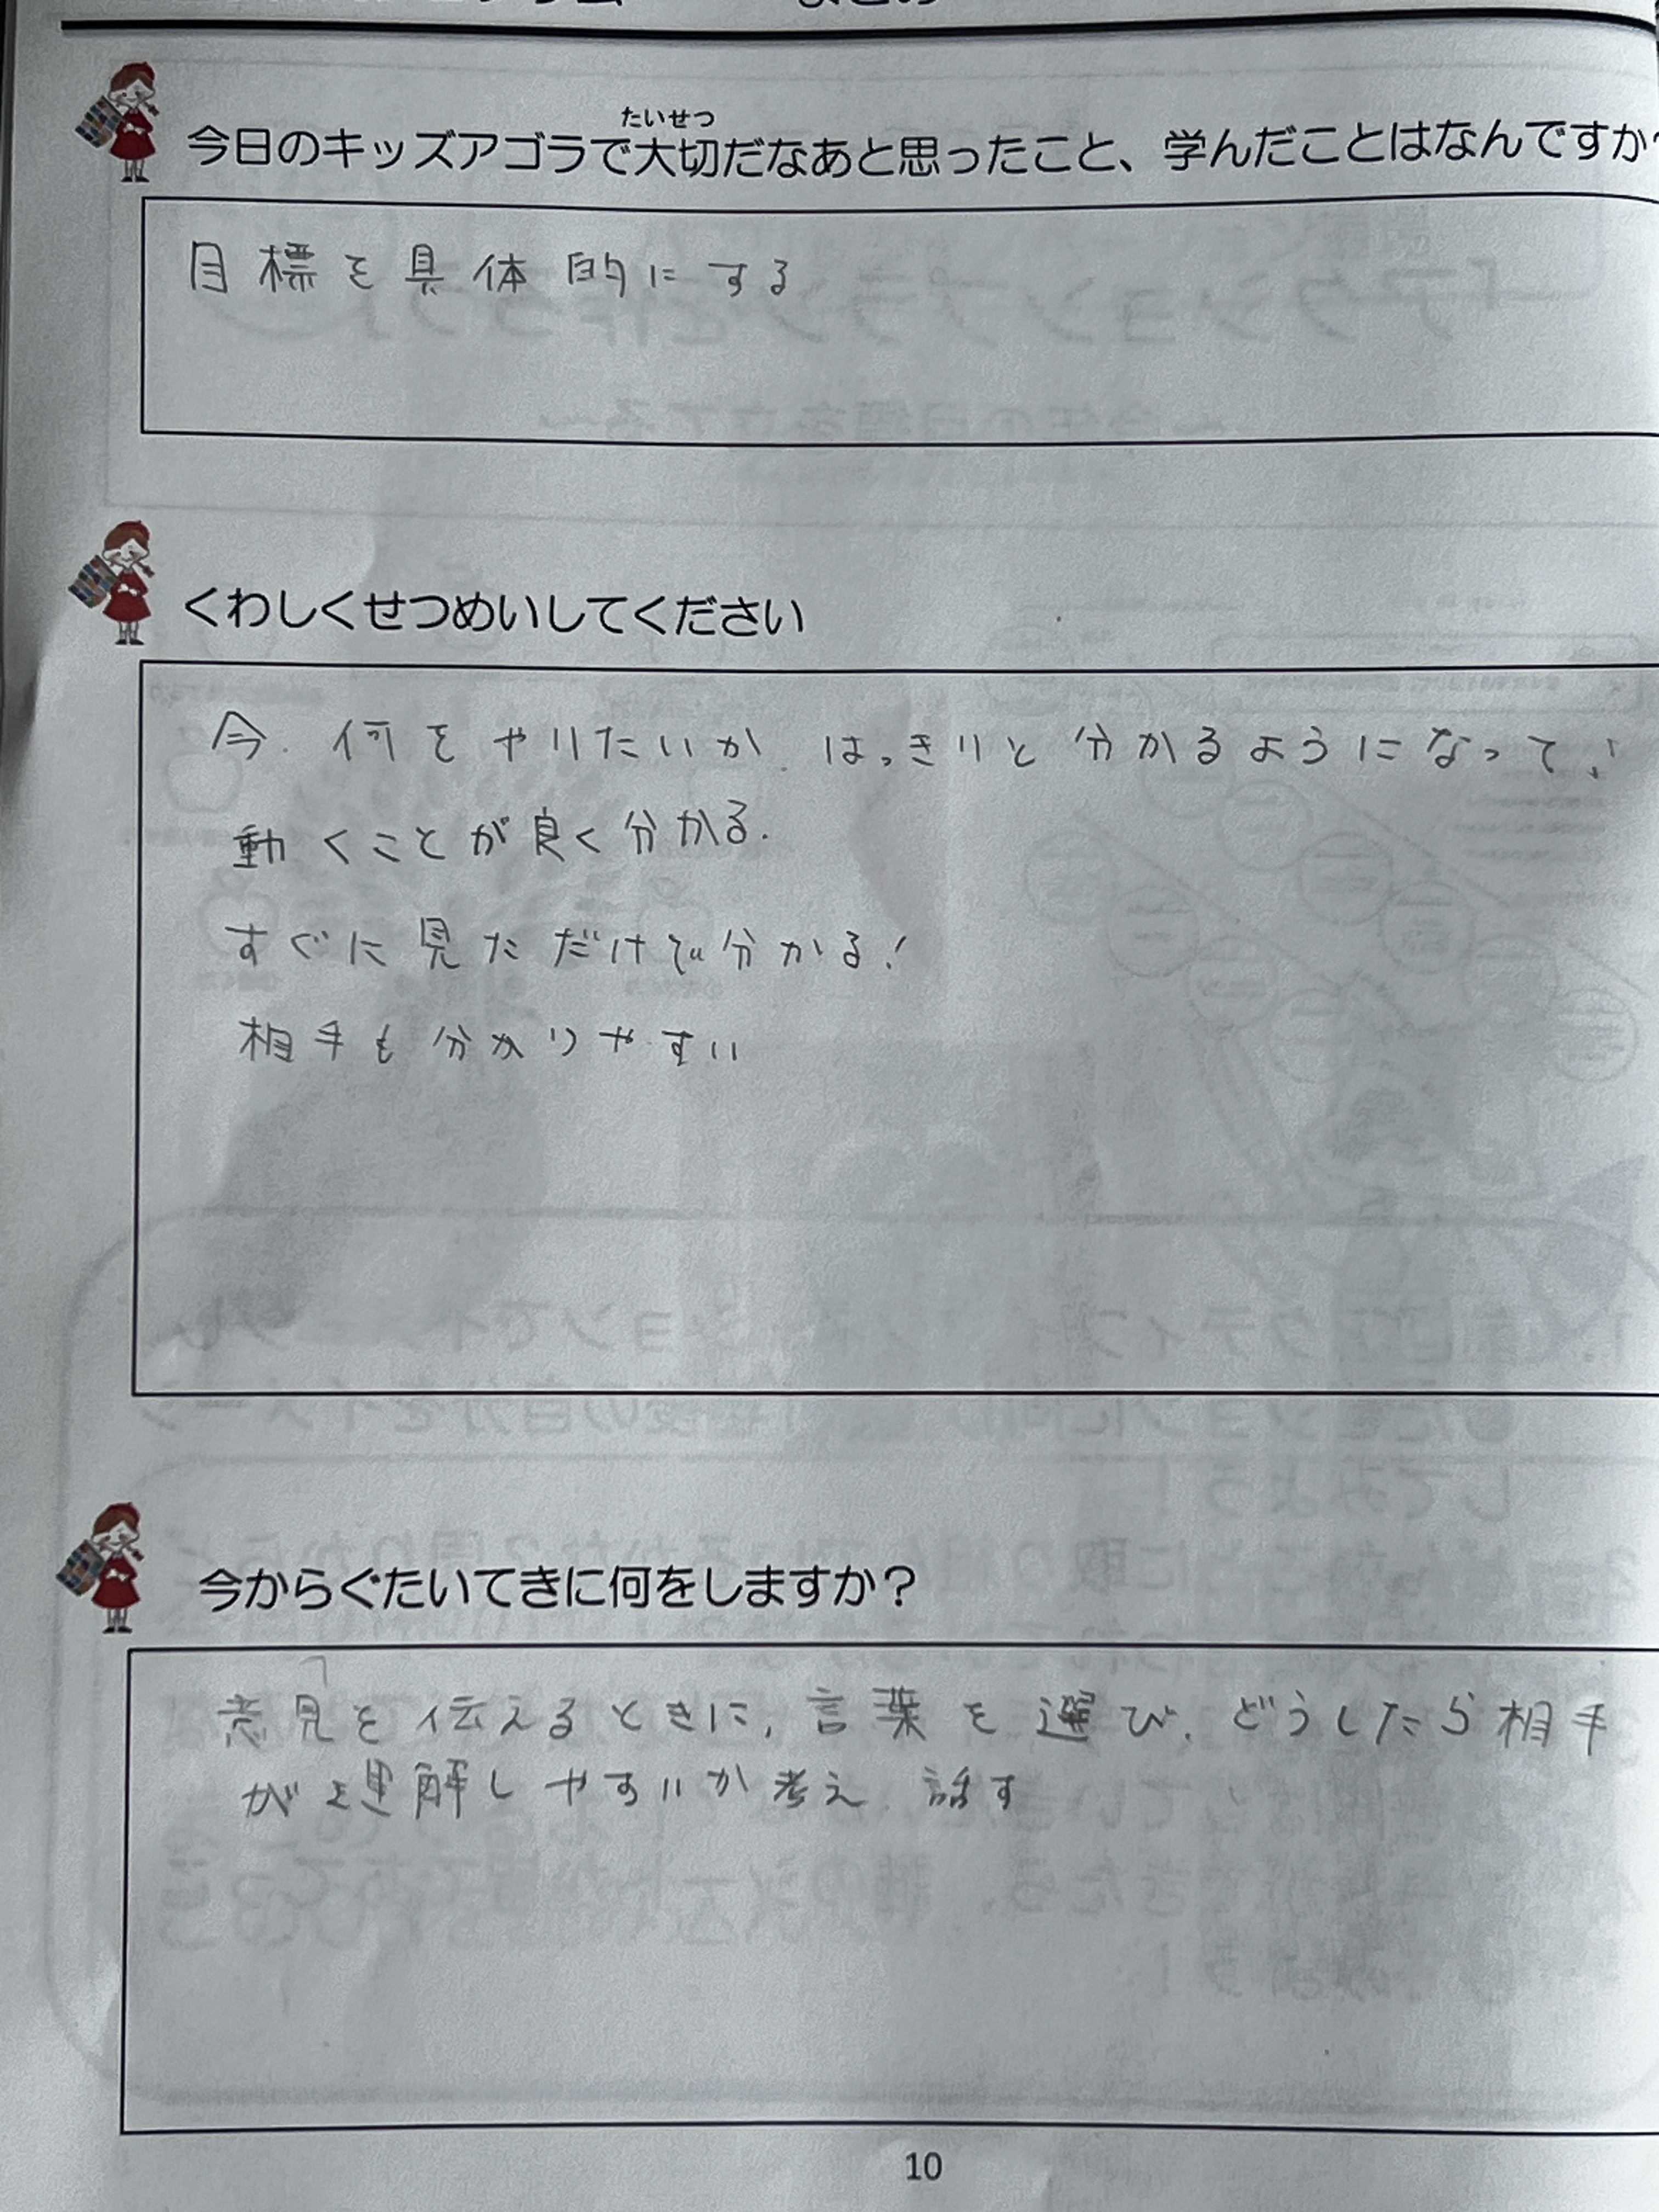 たいせつ
今日のキッズアゴラで大切だなあと思ったこと、学んだことはなんですか
目標を具体的にする
くわしくせつめいしてください
今、何をやりたいか、はっきりと分かるようになって、
動くことが良く分かる。
すぐに見ただけで分かる!
相手も分かりやすい
今からぐたいてきに何をしますか?
意見を伝えるときに、言葉を選び、どうしたら相手
が理解しやすいか考え、話す
10